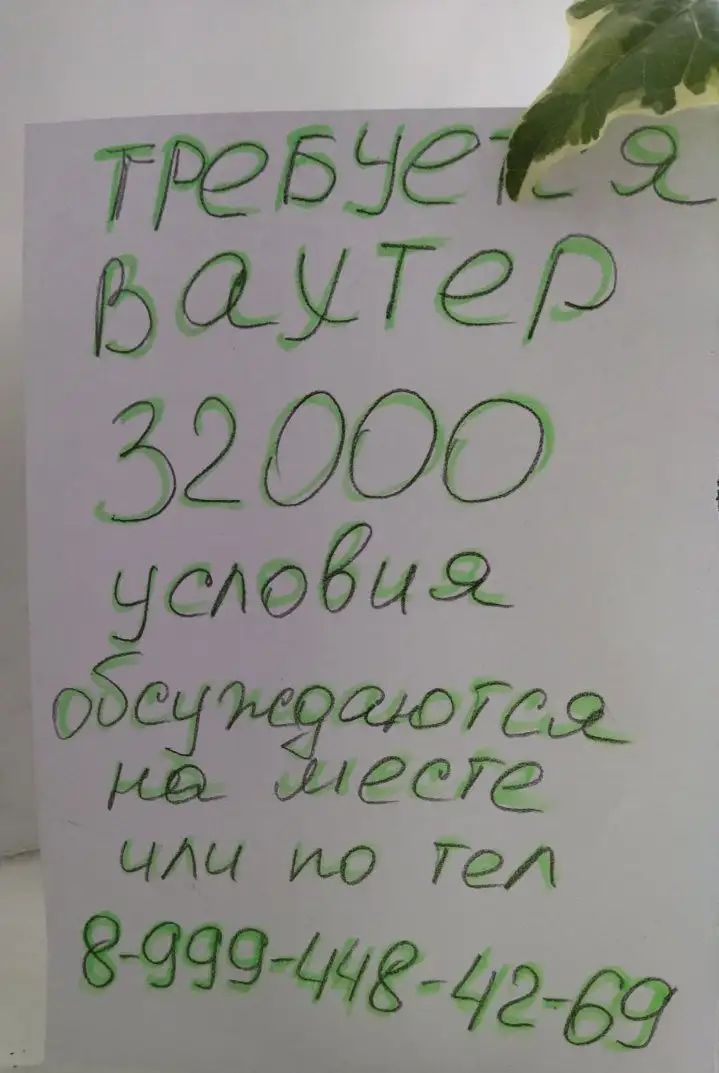 требуется
вахтер
32000
условия
обсуждаются
на месте
или по тел
8-999-448-42-69